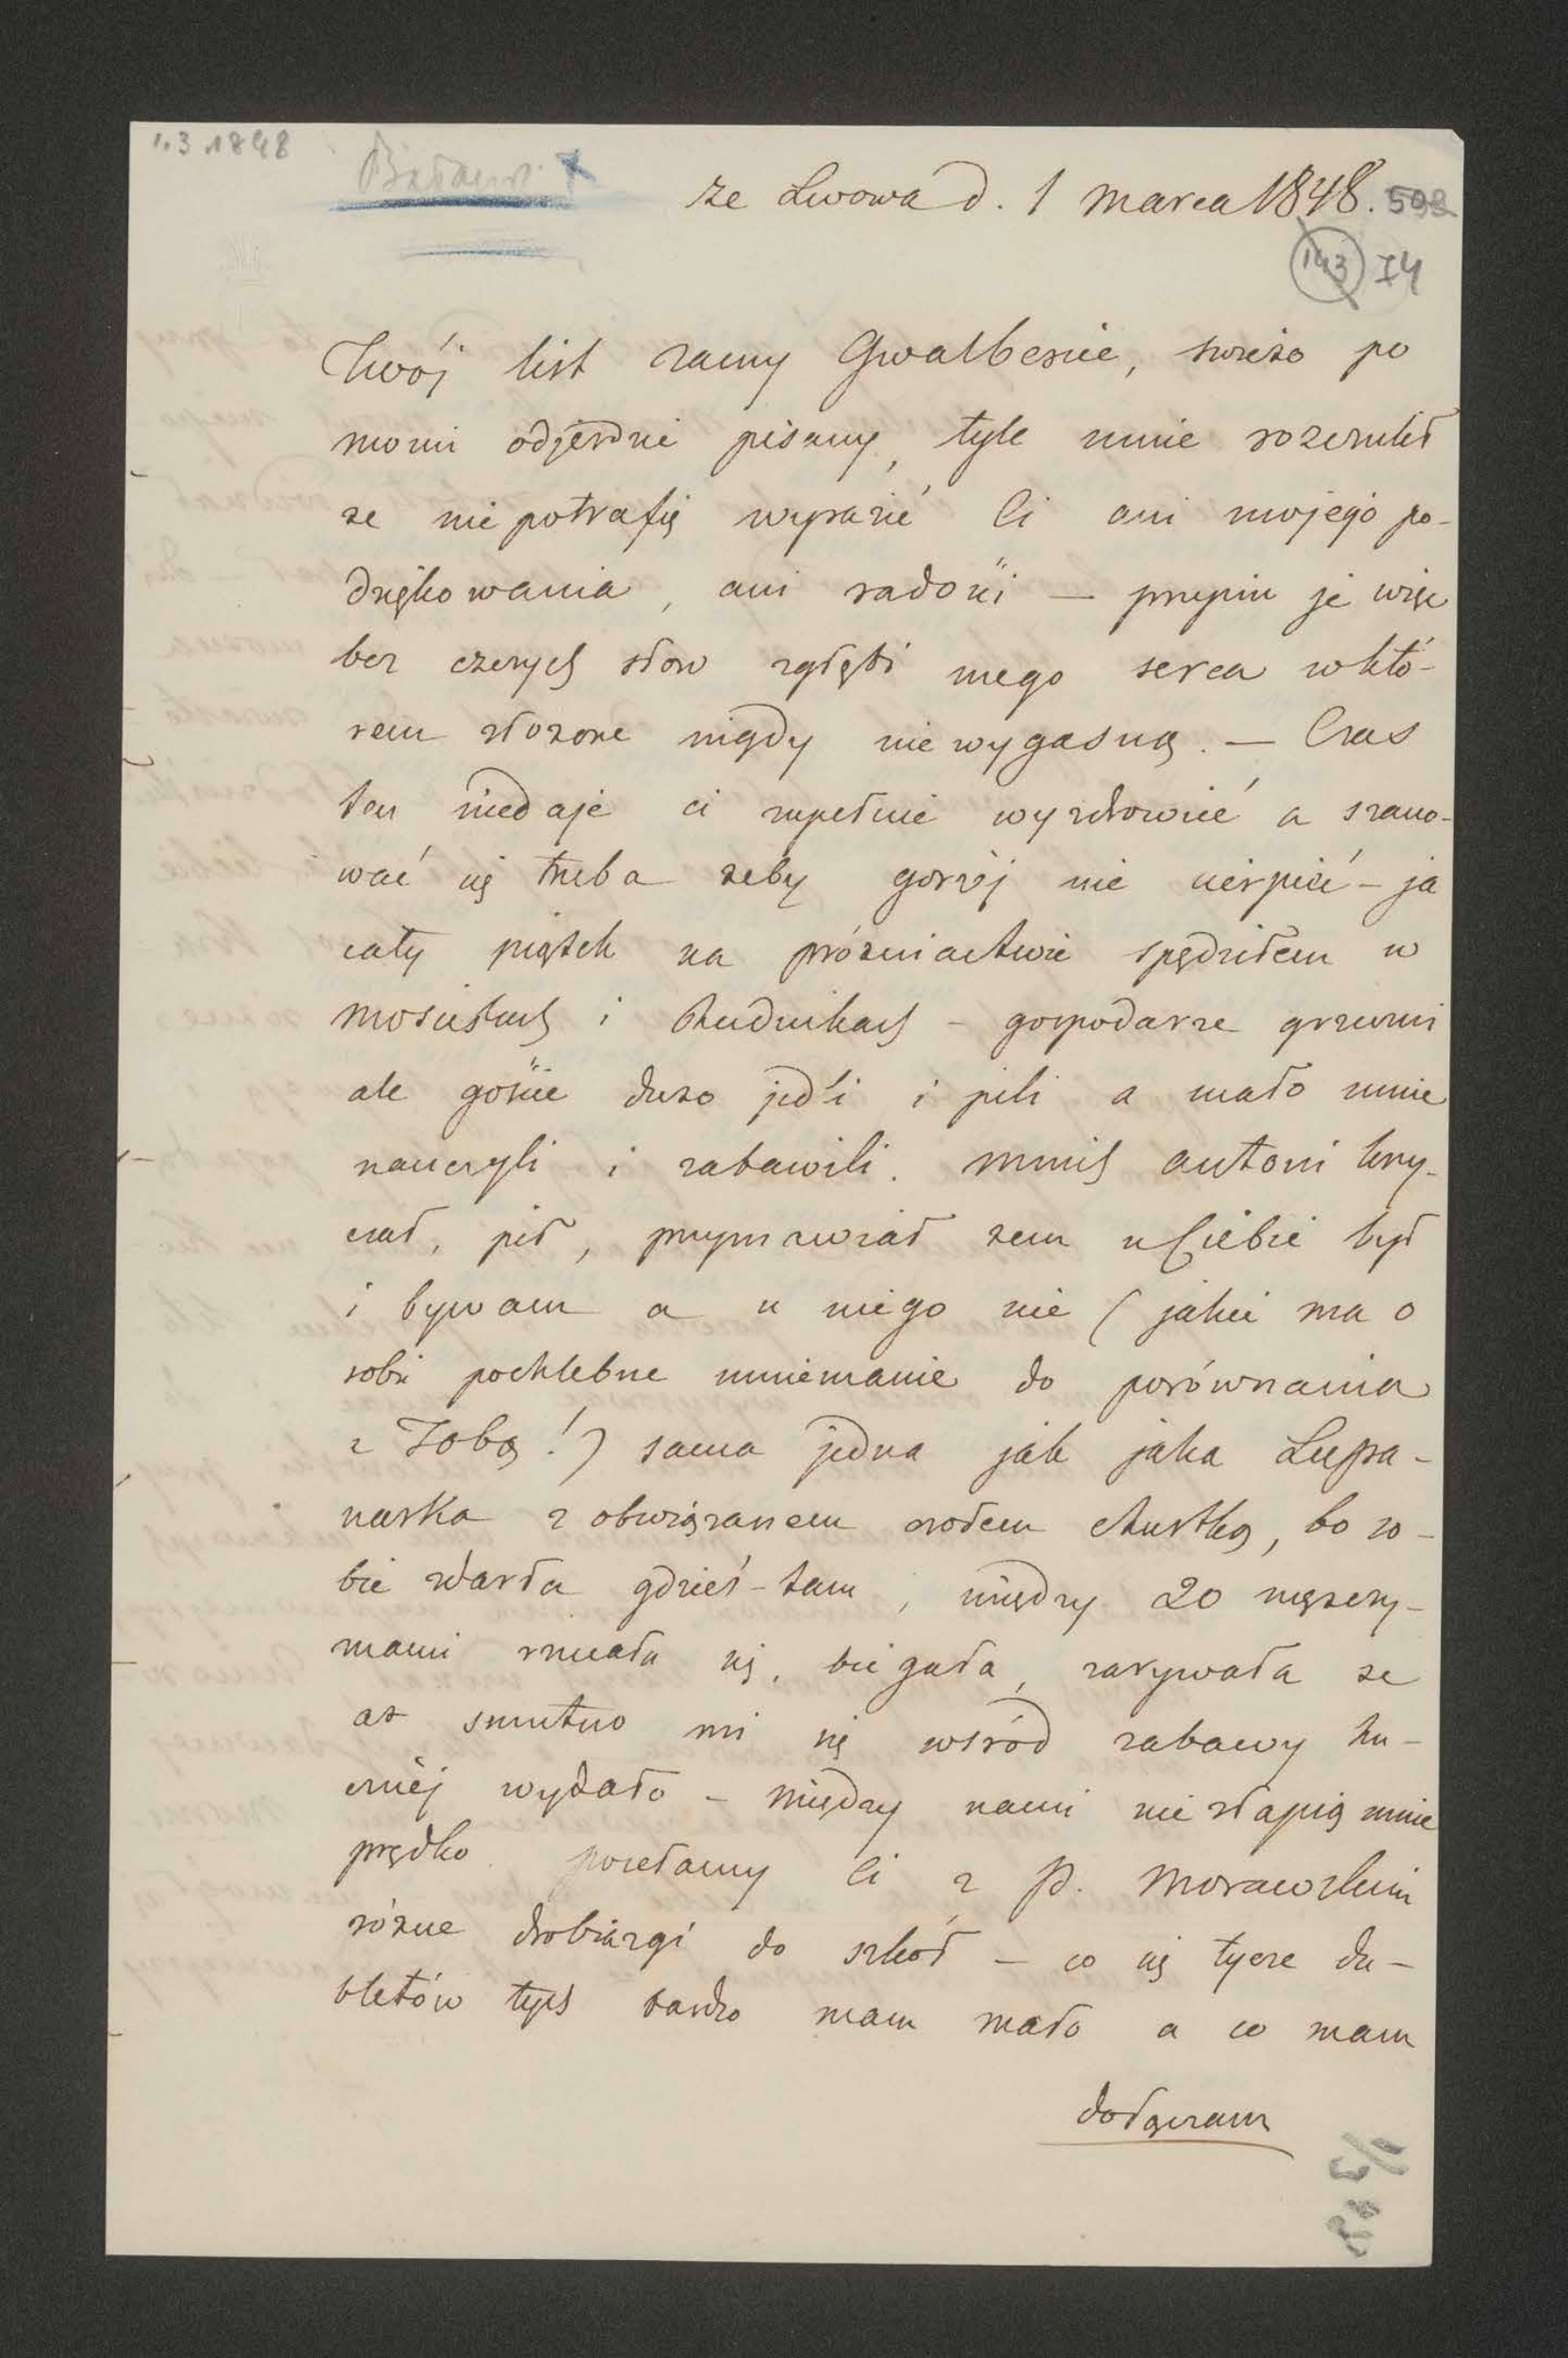 1.3 1848
ze Lwowa d. 1 Marca 1848. 592
143 74
Twój list zacny Gwalbercie, świeżo po
moim odjeździe pisany, tyle mnie rozczulił
że nie potrafię wyrazić Ci ani mojego po-
dziękowania, ani radości — przyjm je więc
bez czczych słow zgłębi mego serca wktó-
rem złożone nigdy niewygasną. — Czas
ten niedaje ci zupełnie wyzdrowieć a szano-
wać się trzeba żeby gorzéj nie cierpieć – ja
cały piątek na próżniactwie spędziłem w
Mościskach i Rudnikach – gospodarze grzeczni
ale goście dużo jedli i pili a mało mnie
nauczyli i zabawili. Mnich Antoni krzy-
czał, pił, przymawiał żem u Ciebie był
i bywam a u niego nie (jakie ma o
sobie pochlebne mniemanie do porównania
z Tobą!) sama jedna jak jaka Lupa-
narka z obwiązanem czołem chustką, bo so-
bie zdarła gdzieś-tam, między 20 męszczy-
znami śmiała się, biegała, zarywała że
aż smutno mi się wśród zabawy hu-
cznéj wydało – między nami nie złapią mnie
prędko. posełamy Ci z P. Morawskim
różne drobiazgi do szkół – co się tycze du-
bletów tych bardzo mam mało a co mam
dołączam